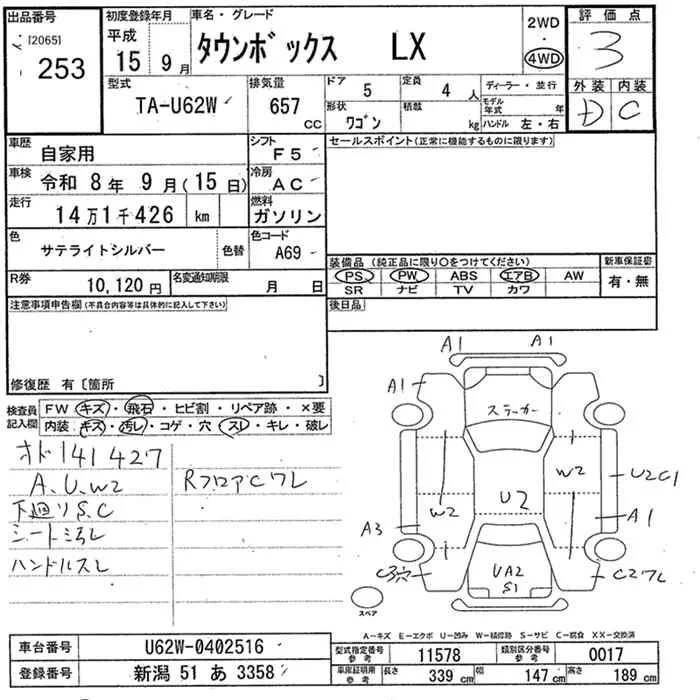 出品番号
[2065]
253
初度登録年月
平成
15年9月
車名・グレード
タウンボックス LX
2WD
・
4WD
評価点
3
外装 内装
D C
型式
TA-U62W
排気量
657
CC
ドア 5
定員 4人
形状 ワゴン
積載 kg
ディーラー・並行
モデル年式 年
ハンドル 左・右
車歴 自家用
シフト F5
車検 令和 8年 9月(15日)
冷房 AC
走行 14万1千426 km
燃料 ガソリン
色 サテライトシルバー 色替
色コード A69
R券 10,120円
名変通知期限 月 日
セールスポイント(正常に機能するものに限ります)
装備品(純正品に限り○をつけてください)
PS PW ABS エアB AW
SR ナビ TV カワ
新車保証書
有・無
注意事項申告欄(不具合内容等は具体的に記入して下さい)
後日品
修復歴 有〔箇所 〕
検査員記入欄
FW キズ・飛石・ヒビ割・リペア跡・×要
内装 キズ・汚レ・コゲ・穴 スレ・キレ・破レ
オド141427
A.U.W2
下廻りS.C
シート汚レ
ハンドルスレ
RフロアCワレ
A1 A1
A1
ステッカー
W2
W2
U2
U2C1
A1
A3
C3穴
UA2
S1
C2ワレ
スペア
A-キズ E-エクボ U-凹み W-補修跡 S-サビ C-腐食 XX-交換済
車台番号 U62W-0402516
登録番号 新潟 51 あ 3358
型式指定番号
参考
11578
類別区分番号
参考
0017
車庫証明用
参考
長さ 339 cm
幅 147 cm
高さ 189 cm